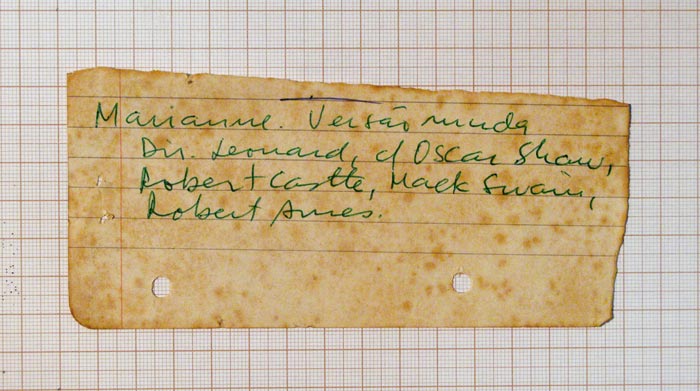 Marianne. Versão muda
Dir. Leonard, c/ Oscar Shaw,
Robert Castle, Mack Swain,
Robert Ames.